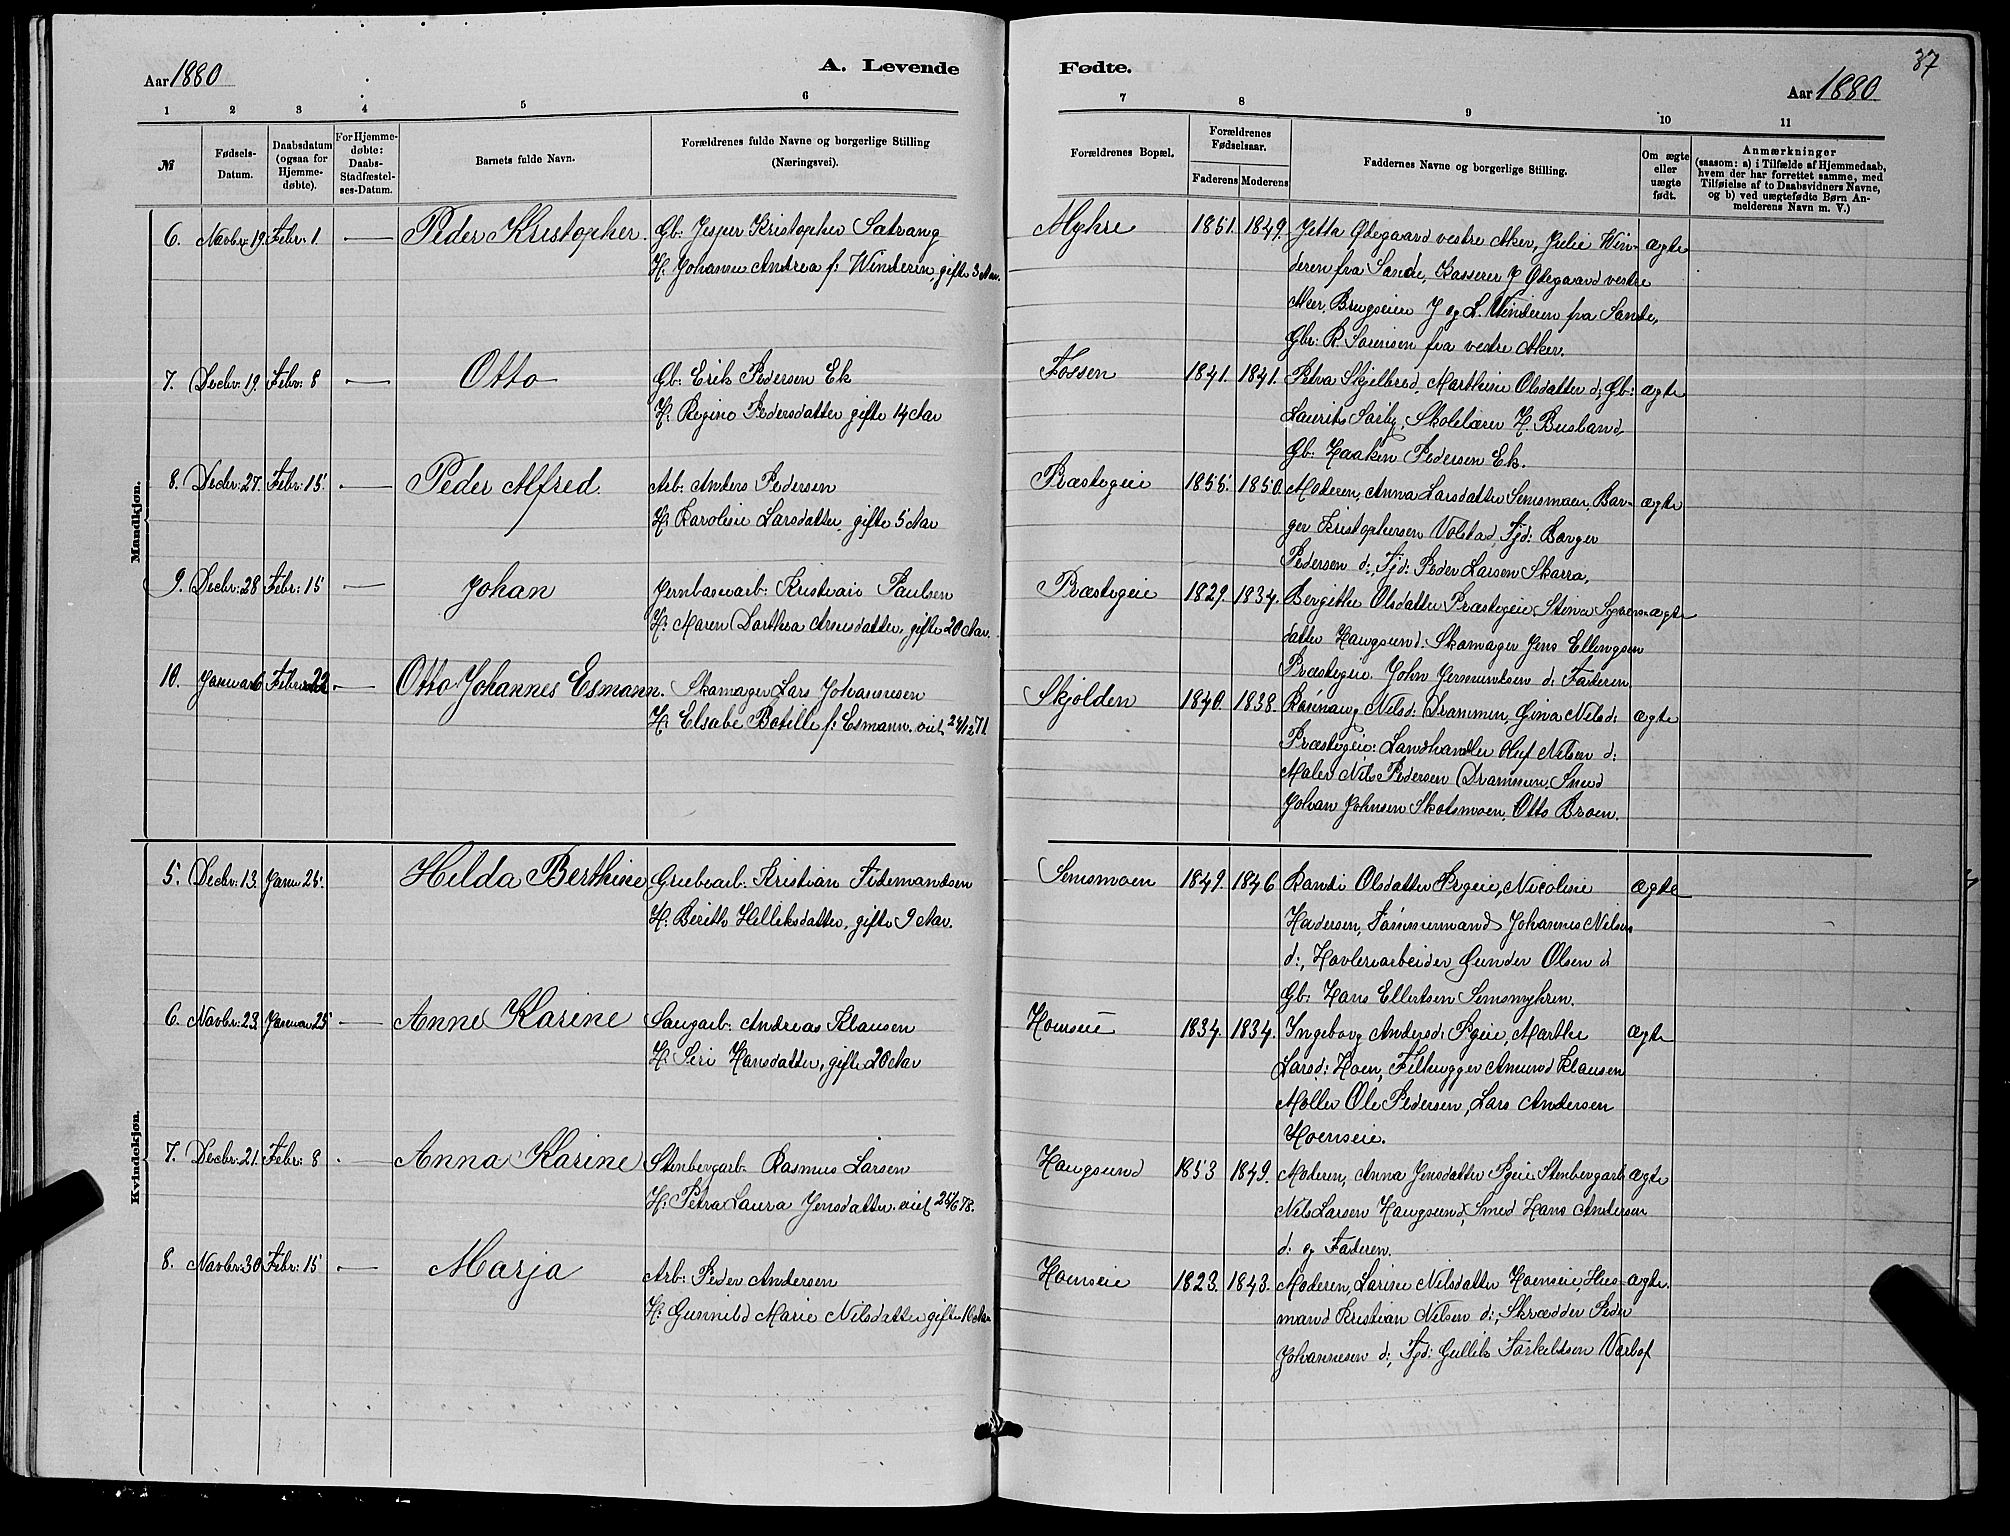 Aar 1880
A. Levende
1 2 3 4 5 6
№
Fødsels-
Datum.
Daabsdatum
(ogsaa for
Hjemme-
døbte).
For Hjemme-
døbte:
Daabs-
Stadfæstel-
ses-Datum.
Barnets fulde Navn.
Forældrenes fulde Navne og borgerlige Stilling
(Næringsvei).
Mandkjøn.
6. Novbr: 19. Febr: 1 — Peder Kristopher. Gb: Jesper Kristopher Satrang
H. Johanne Andrea f: Winderen, gifte 3 Aar.
7. Decbr: 19. Febr: 8 — Otto Gb: Erik Pedersen Ek
H: Regine Pedersdatter gifte 14 Aar
8. Decbr: 27. Febr: 15. — Peder Alfred. Arb: Anders Pedersen
H: Karoline Larsdatter, gifte 5 Aar
9. Decbr: 28 Febr: 15 — Johan Jernbanearb: Kristian Paulsen
H: Maren Dorthea Arnesdatter, gifte 20 Aar.
10. Januar 6 Februar 22 — Otto Johannes Esmann. Skomager Lars Johannesen
H: Elsabe Botille f: Esmann. viet 24/12 71.
Kvindekjøn.
5. Decbr: 13. Janu 25. Hilda Berthine Grubearb: Kristian Tidemandsen
H: Berith Helliksdatter, gifte 9 Aar.
6. Novbr: 23. Januar 25 — Anne Karine Saugarb: Andreas Klausen
H: Siri Hansdatter, gifte 20 Aar
7. Decbr: 21. Febr: 8 — Anna Karine Stenbergarb. Rasmus Larsen
H: Petra Laura Jensdatter. viet 26/6 78.
8. Novbr: 30 Febr: 15 — Marja Arb: Peder Andersen
H: Gunnild Marie Nilsdatter gifte 16 Aar
37
Fødte.
Aar 1880
7 8 9 10 11
Forældrenes Bopæl.
Forældrenes
Fødselsaar.
Faderens Moderens
Faddernes Navne og borgerlige Stilling.
Om ægte
eller
uægte
født.
Anmærkninger
(saasom: a) i Tilfælde af Hjemmedaab,
hvem der har forrettet samme, med
Tilføielse af to Daabsvidners Navne,
og b) ved uægtefødte Børn An-
melderens Navn m. V.)
Myhre 1851. 1849. Jetta Ødegaard vestre Aker, Julie Win- ægte
deren fra Sande, Kasserer J Ødegaard vestre
Aker, Brugseier J og L. Winderen fra Sande,
Gbr: R. Sørensen fra vestre Aker.
Fossen 1841. 1841. Petra Skjelbred, Marthine Olsdatter d; Gb: ægte
Laurits Sørby, Skolelærer H. Busland,
Gb: Haaken Pedersen Ek.
Præstegeie 1855. 1850. Moderen, Anna Larsdatter Semsmoen, Bor- ægte
ger Kristophersen Volstad, Tjd: Borger
Pedersen d:, Tjd: Peder Larsen Skarra,
Præstegeie 1829. 1834. Bergitte Olsdatter Præstegeie, Stina Syvers- ægte
datter Haugsund. Skomager Jens Ellingsen
Præstegeie John Jermundsen d: Faderen.
Skjolden 1840. 1838. Rønnaug Nilsd: Drammen, Gina Nilsd: ægte
Præstegeie: Landhandler Oluf Nilsen d:
Maler Nils Pedersen Drammen, Smed
Johan Johnsen Skotsmoen, Otto Broen.
Semsmoen 1849. 1846 Randi Olsdatter Prgeie, Nicoline ægte
Hadersen, Tømmermand Johannes Nilsen
d:, Høvleriarbeider Gunder Olsen d
Gb: Hans Ellertsen Semsmyhren.
Hoenseie 1834. 1834. Ingeborg Andersd: Pgeie, Marthe ægte
Larsd: Hoen, Filhugger Amund Klausen
Møller Ole Pedersen, Lars Andersen
Hoenseie.
Haugsund 1853 1849. Moderen, Anna Jensdatter Pgeie Stenbergarb ægte
Nils Larsen Haugsund, Smed Hans Andersen
d: og Faderen.
Hoenseie 1823. 1843. Moderen, Larine Nilsdatter Hoenseie, Hus- ægte.
mand Kristian Nilsen d:, Skrædder Peder
Johannesen d:, Tjd: Gullik Torkildsen Varlof